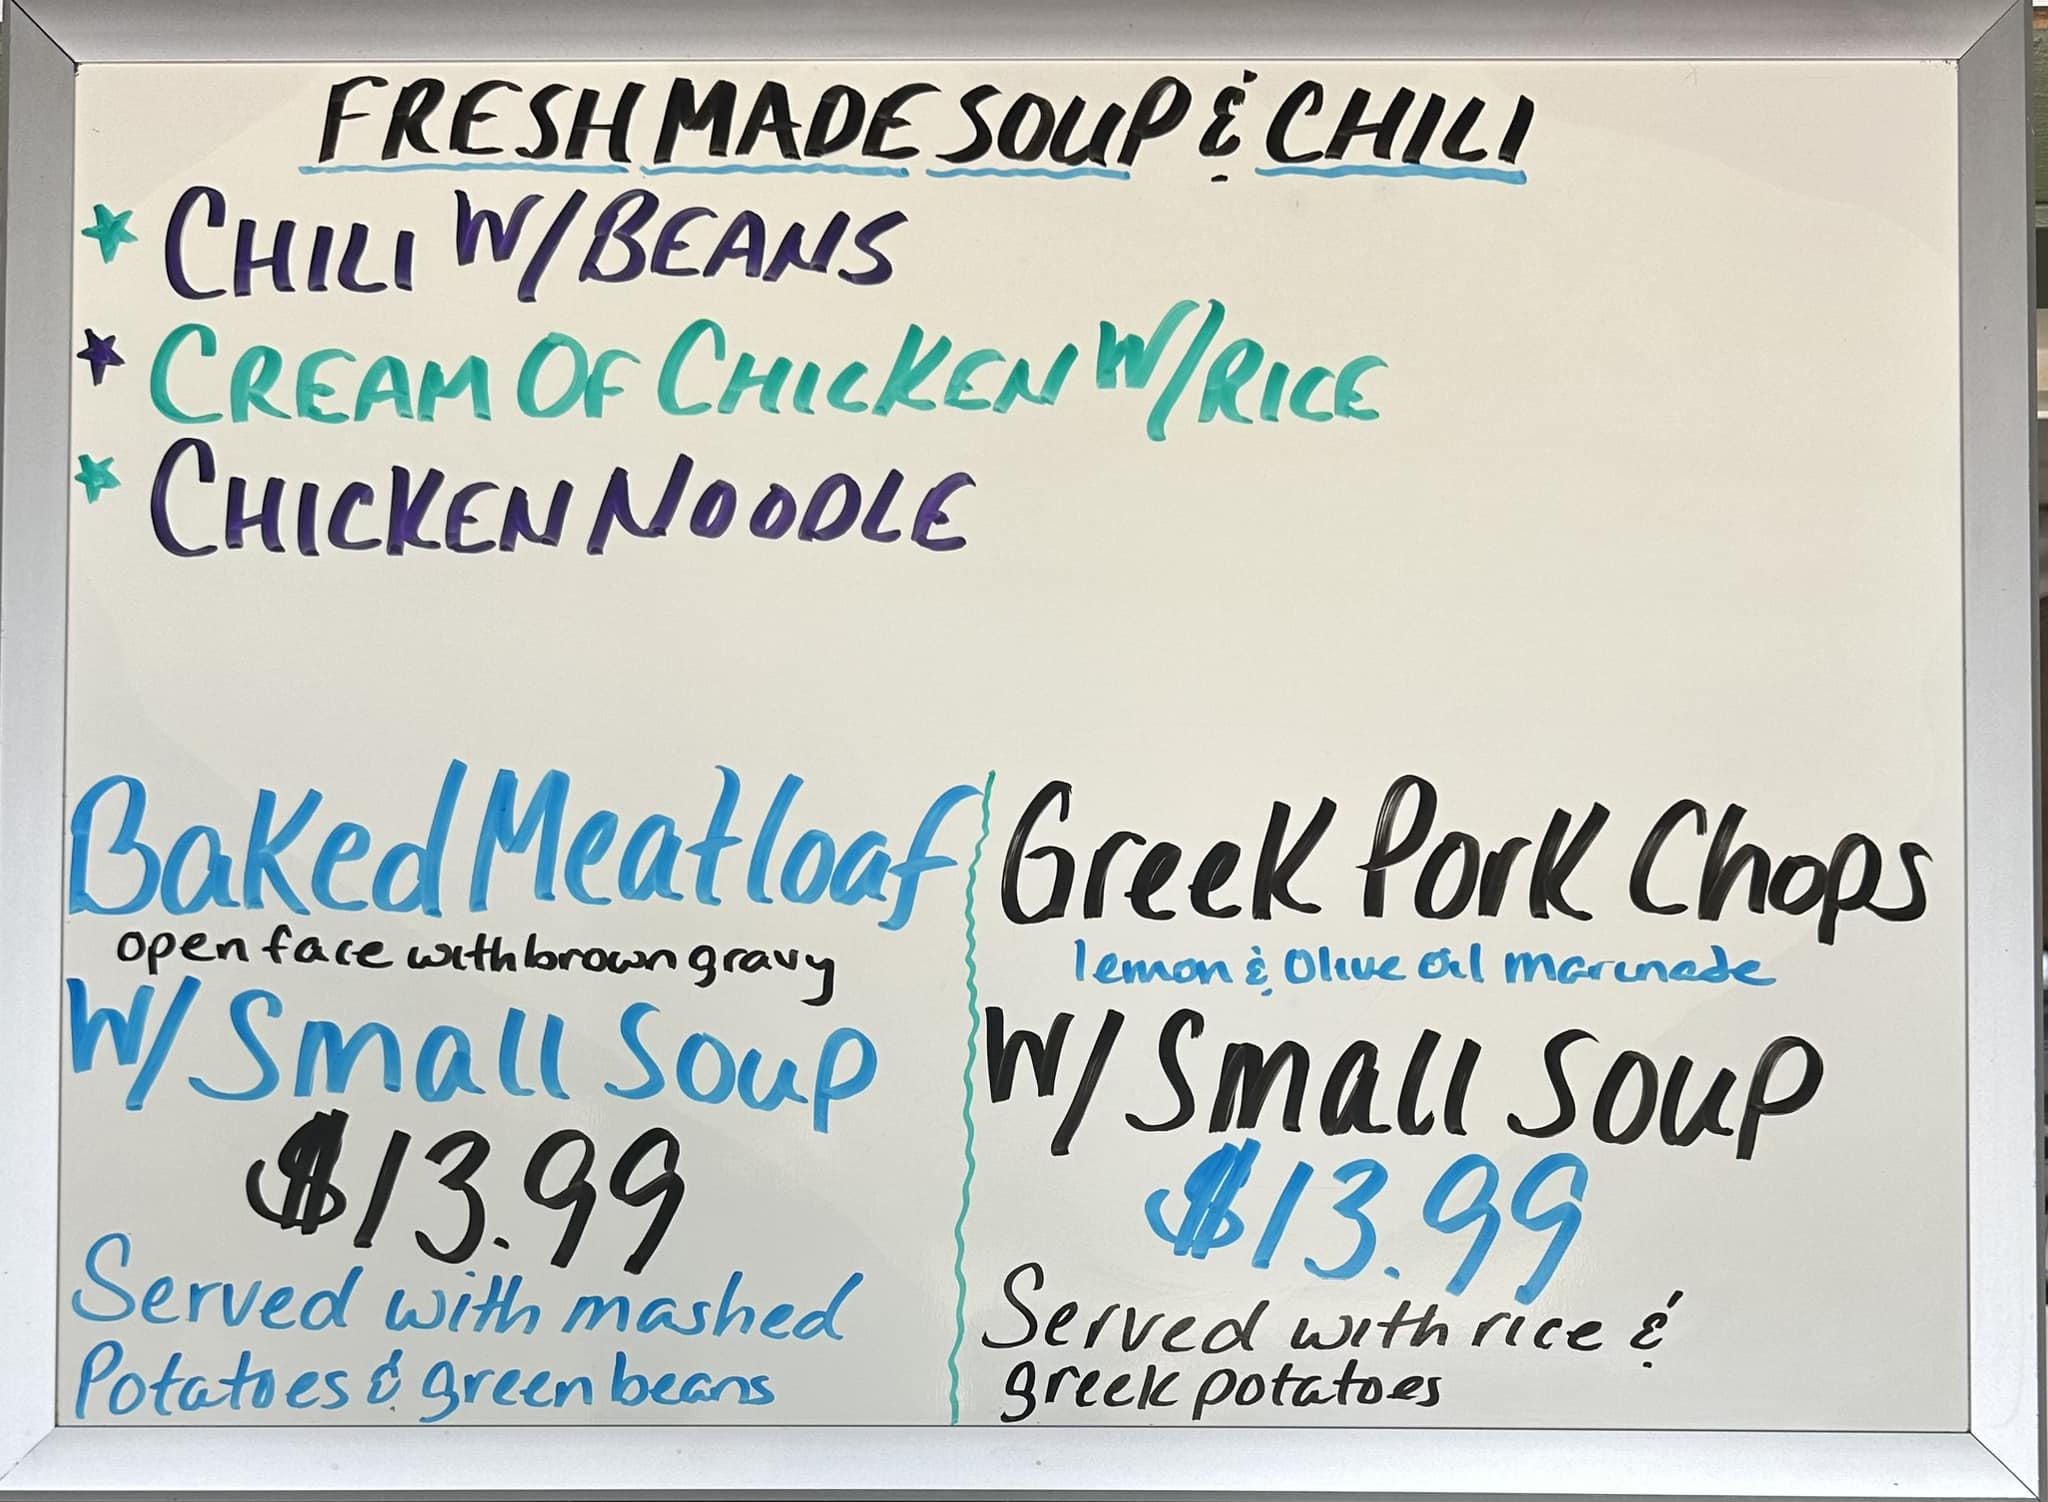 FRESH MADE SOUP & CHILI
CHILI W/BEANS
CREAM OF CHICKEN W/RICE
CHICKEN NOODLE
Baked Meatloaf
open face with brown gravy
W/ Small Soup
$13.99
Served with mashed
Potatoes & green beans
Greek Pork Chops
lemon & Olive oil marinade
W/ Small Soup
$13.99
Served with rice &
greek potatoes